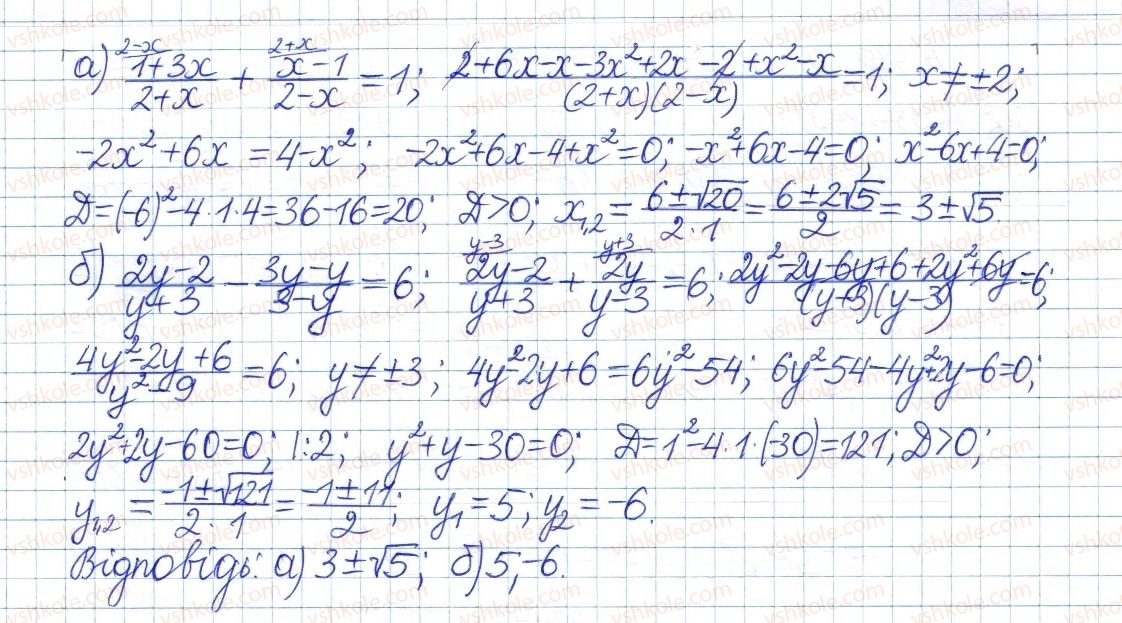 а) 2-x 1+3x/2+x + 2+x x-1/2-x = 1; 2+6x-x-3x²+2x-2+x²-x/(2+x)(2-x) = 1; x≠±2;
-2x²+6x = 4-x²; -2x²+6x-4+x²=0; -x²+6x-4=0; x²-6x+4=0;
Д=(-6)²-4·1·4=36-16=20; Д>0; x₁,₂ = 6±√20/2·1 = 6±2√5/2 = 3±√5.
б) 2y-2/y+3 - 3y-y/3-y = 6; y-3 2y-2/y+3 + y+3 2y/y-3 = 6; 2y²-2y-6y+6+2y²+6y/(y+3)(y-3) = 6;
4y²-2y+6/y²-9 = 6; y≠±3; 4y²-2y+6=6y²-54; 6y²-54-4y²+2y-6=0;
2y²+2y-60=0; |:2; y²+y-30=0; Д=1²-4·1·(-30)=121; Д>0;
y₁,₂ = -1±√121/2·1 = -1±11/2; y₁=5; y₂=-6.
Відповідь: а) 3±√5; б) 5;-6.